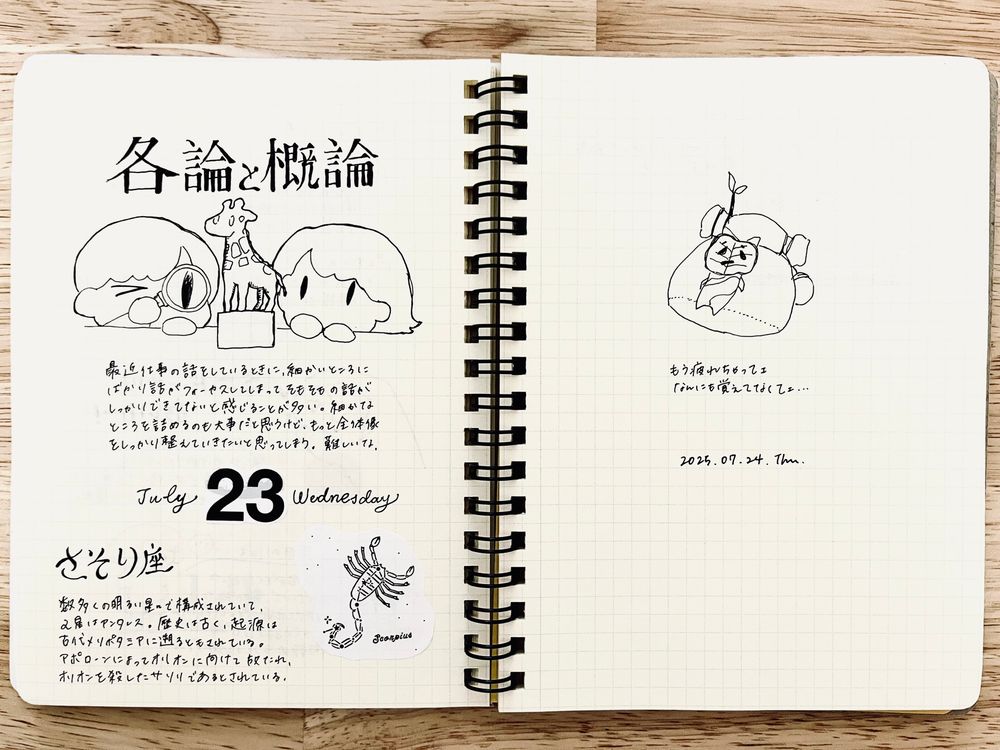 各論と概論
最近仕事の話をしているときに、細かいところに
ばかり話がフォーカスしてしまってそもそもの話が
しっかりできてないと感じることが多い。細かな
ところを詰めるのも大事だと思うけど、もっと全体像
をしっかり整えていきたいと思ってしまう。難しいな。
July 23 Wednesday
さそり座
数多くの明るい星々で構成されていて、
α星はアンタレス。歴史は古く、起源は
古代メソポタミアに遡るともされている。
アポローンによってオリオンに向けて放たれ、
オリオンを殺したサソリであるとされている。
Scorpius
もう疲れちゃってェ
なんにも覚えてなくてェ…
2025.07.24.Thu.